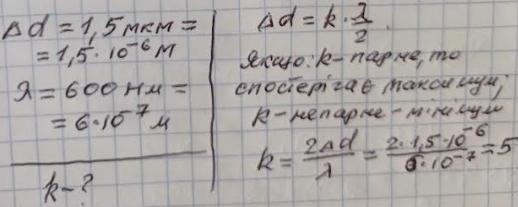 Δd = 1,5 мкм =
= 1,5 · 10⁻⁶ м
λ = 600 нм =
= 6 · 10⁻⁷ м
k - ?
Δd = k · λ/2.
Якщо: k - парне, то
спостерігає максимум;
k - непарне - мінімум
k = 2Δd/λ = 2 · 1,5 · 10⁻⁶/6 · 10⁻⁷ = 5